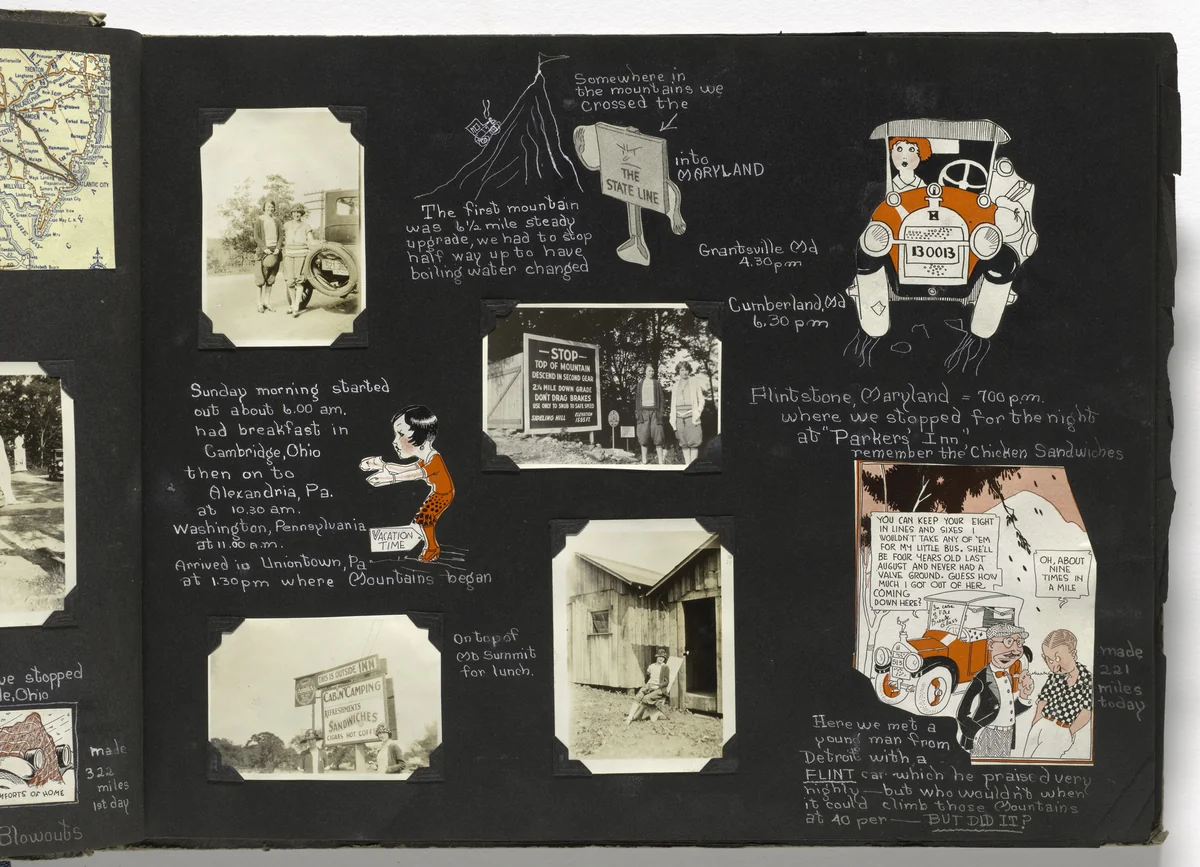 TRENTON
CAMDEN
MILLVILLE
ATLANTIC CITY
we stopped
le, Ohio
made
322
miles
1st day
MFORTS OF HOME
Blowouts
Somewhere in
the mountains we
crossed the
THE
STATE LINE
into
MARYLAND
The first mountain
was 6½ mile steady
upgrade, we had to stop
half way up to have
boiling water changed
Grantsville Md
4.30 pm
Cumberland, Md
6.30 pm
H
130013
—STOP—
TOP OF MOUNTAIN
DESCEND IN SECOND GEAR
2¼ MILE DOWN GRADE
DON'T DRAG BRAKES
USE ONLY TO SNUB TO SAFE SPEED
SIDELING HILL
ELEVATION
Flintstone, Maryland = 700 p.m.
where we stopped for the night
at "Parkers' Inn"
remember the Chicken Sandwiches
Sunday morning started
out about 6.00 am.
had breakfast in
Cambridge, Ohio
then on to
Alexandria, Pa.
at 10.30 am.
Washington, Pennsylvania
at 11.00 a.m.
Arrived in Uniontown, Pa
at 1:30 pm where Mountains began
VACATION
TIME
THIS IS OUTSIDE INN
CABIN CAMPING
REFRESHMENTS
SANDWICHES
CIGARS HOT COFFEE
On top of
Mt Summit
for lunch.
YOU CAN KEEP YOUR EIGHT
IN LINES AND SIXES I
WOULDN'T TAKE ANY OF 'EM
FOR MY LITTLE BUS. SHE'LL
BE FOUR YEARS OLD LAST
AUGUST AND NEVER HAD A
VALVE GROUND. GUESS HOW
MUCH I GOT OUT OF HER
COMING
DOWN HERE?
OH, ABOUT
NINE
TIMES IN
A MILE
In case
of Fire
Break
Glass
made
221
miles
today
Here we met a
young man from
Detroit with a
FLINT car which he praised very
highly — but who wouldn't when
it could climb those Mountains
at 40 per — BUT DID IT?